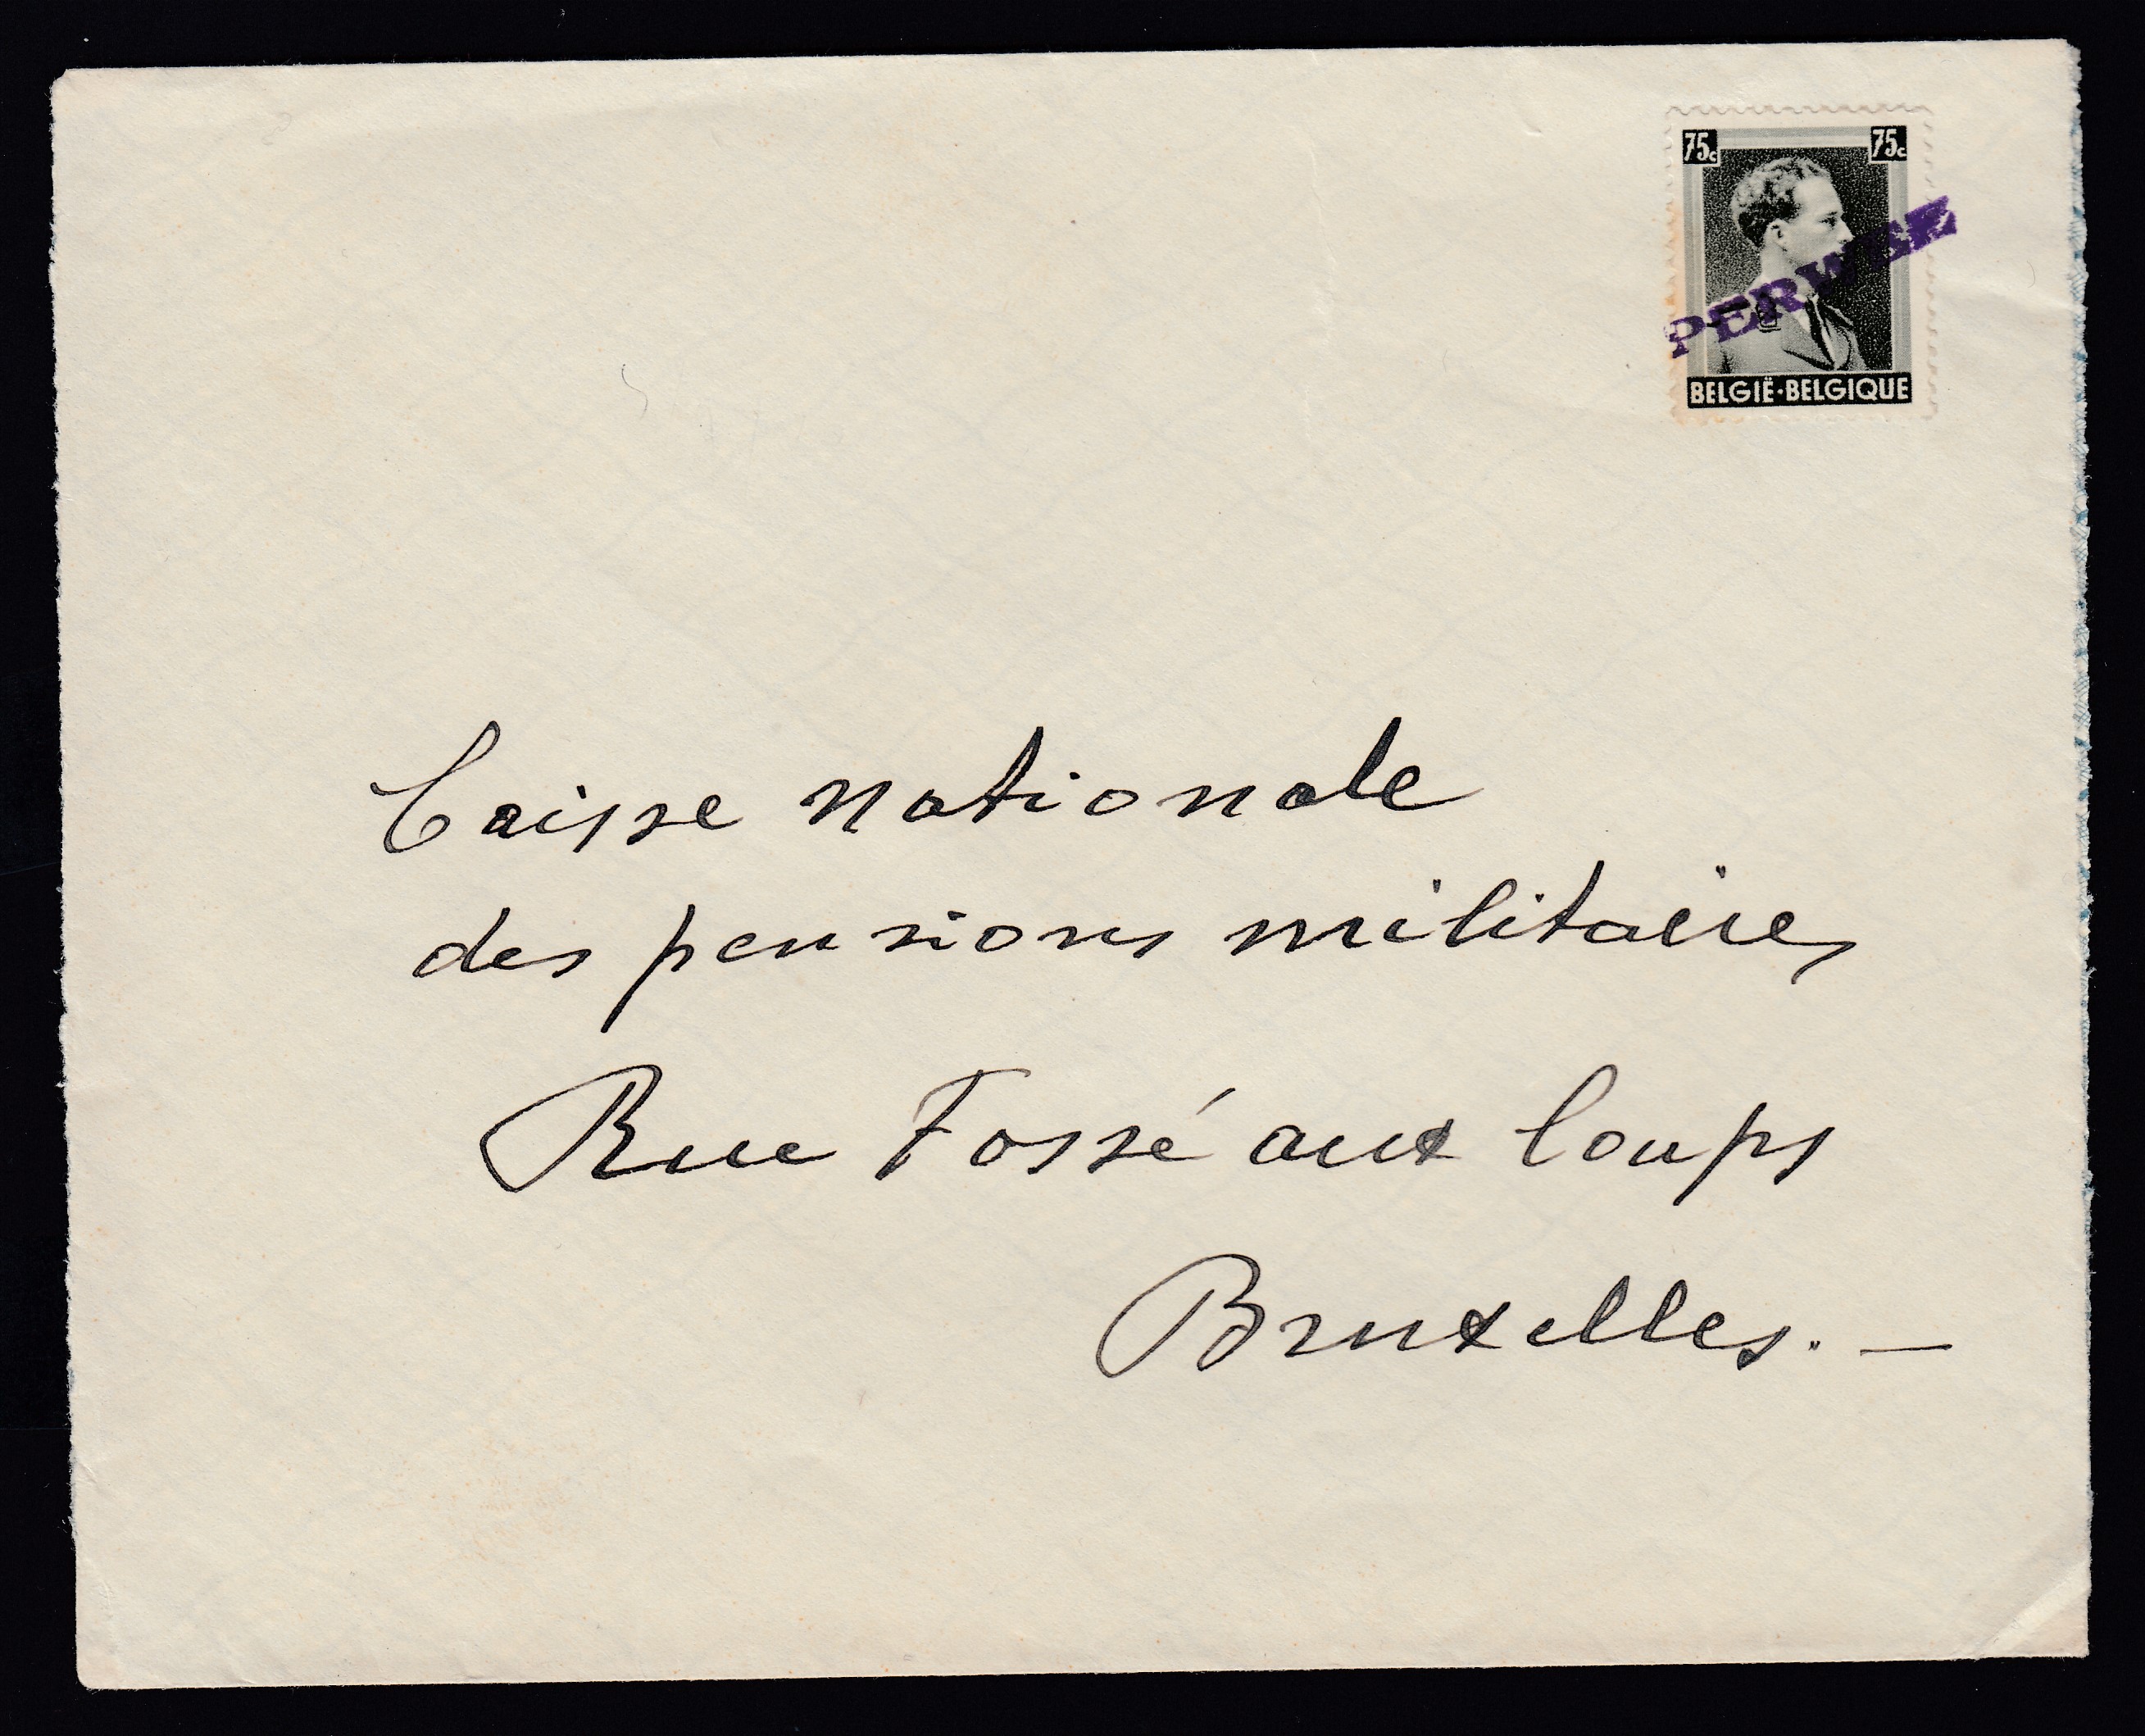 75c 75c
PERWEZ
BELGIË·BELGIQUE
Caisse nationale
des pensions militaires
Rue Fossé aux loups
Bruxelles. —